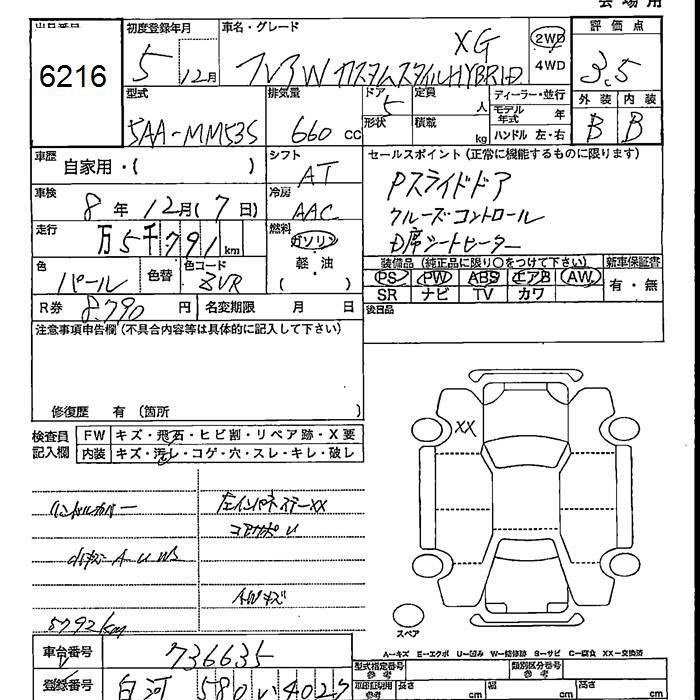 6216
初度登録年月 5年12月
車名・グレード XG
フレアW カスタムスタイル HYBRID
2WD
4WD
評価点 3.5
外装 内装
B B
型式 5AA-MM53S
排気量 660 cc
ドア 5
形状
定員 人
積載 kg
ディーラー・並行
モデル年式 年
ハンドル 左・右
車歴 自家用・( )
シフト AT
車検 8年12月(7日)
冷房 AAC
走行 万5千791km
燃料 ガソリン
軽・油
( )
色 パール
色替
色コード ZVR
R券 8,790円
名変期限 月 日
セールスポイント(正常に機能するものに限ります)
Pスライドドア
クルーズコントロール
D席シートヒーター
装備品(純正品に限り○をつけて下さい) 新車保証書
PS PW ABS エアB AW 有・無
SR ナビ TV カワ
後日品
注意事項申告欄(不具合内容等は具体的に記入して下さい)
修復歴 有(箇所 )
検査員記入欄
FW キズ・飛石・ヒビ割・リペア跡・X要
内装 キズ・汚レ・コゲ・穴・スレ・キレ・破レ
XX
ハンドルカバー
左インパネステーXX
コアサポU
小キズ A U WS
AWキズ
5792km
スペア
A-キズ E-エクボ U-凹み W-補修跡 S-サビ C-腐食 XX-交換済
車台番号 736635
登録番号 白河 580 い 4027
型式指定番号 参考
類別区分番号 参考
車印証印用 参考 長さ cm 幅 cm 高さ cm